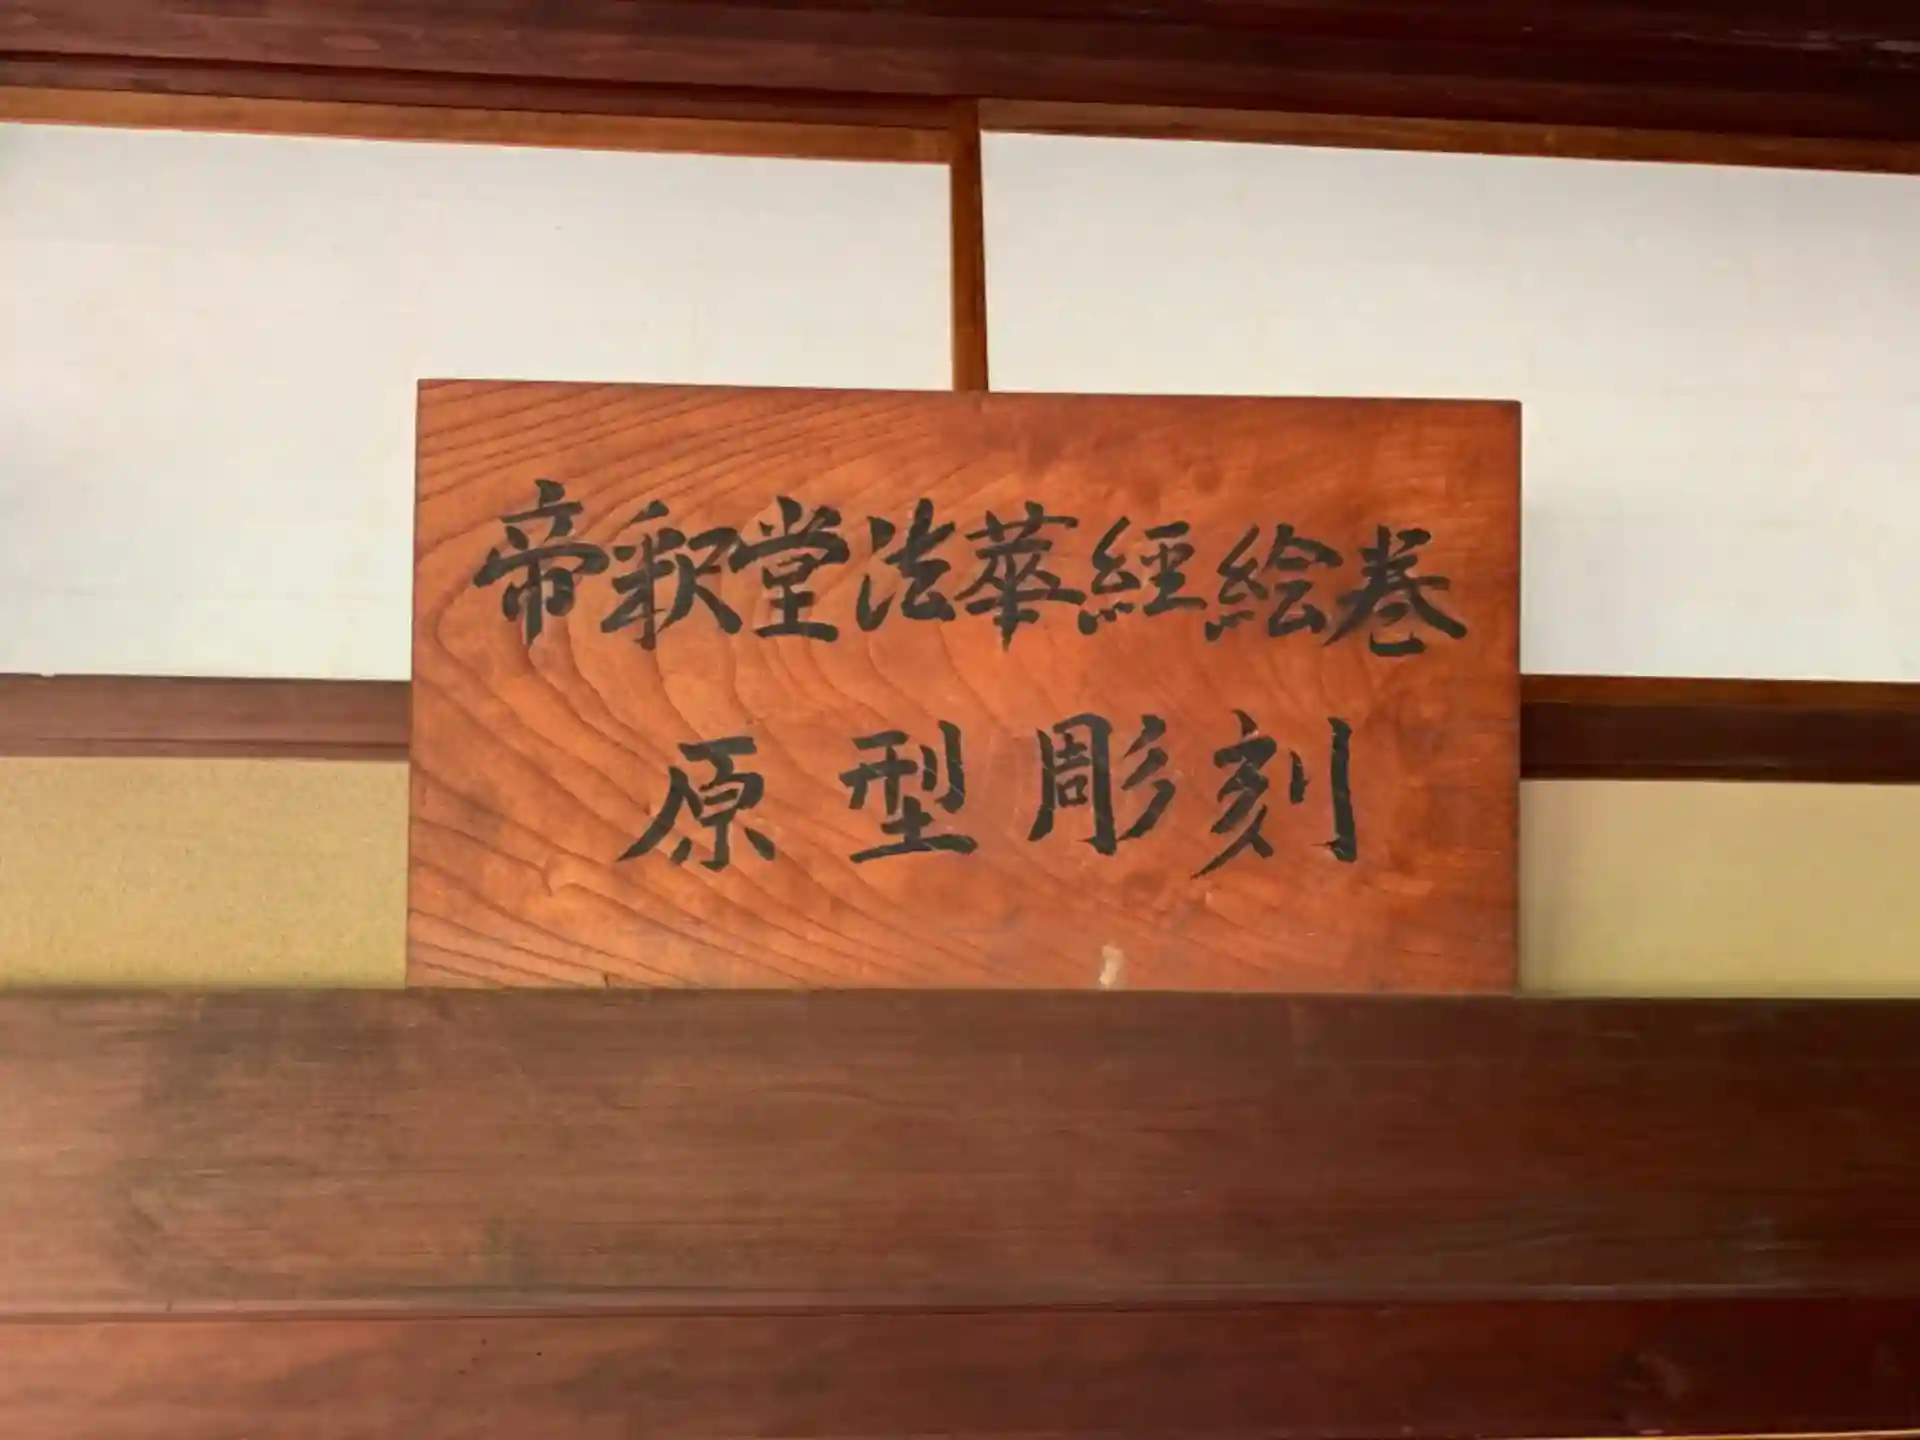 帝釈堂法華経絵巻
原型彫刻